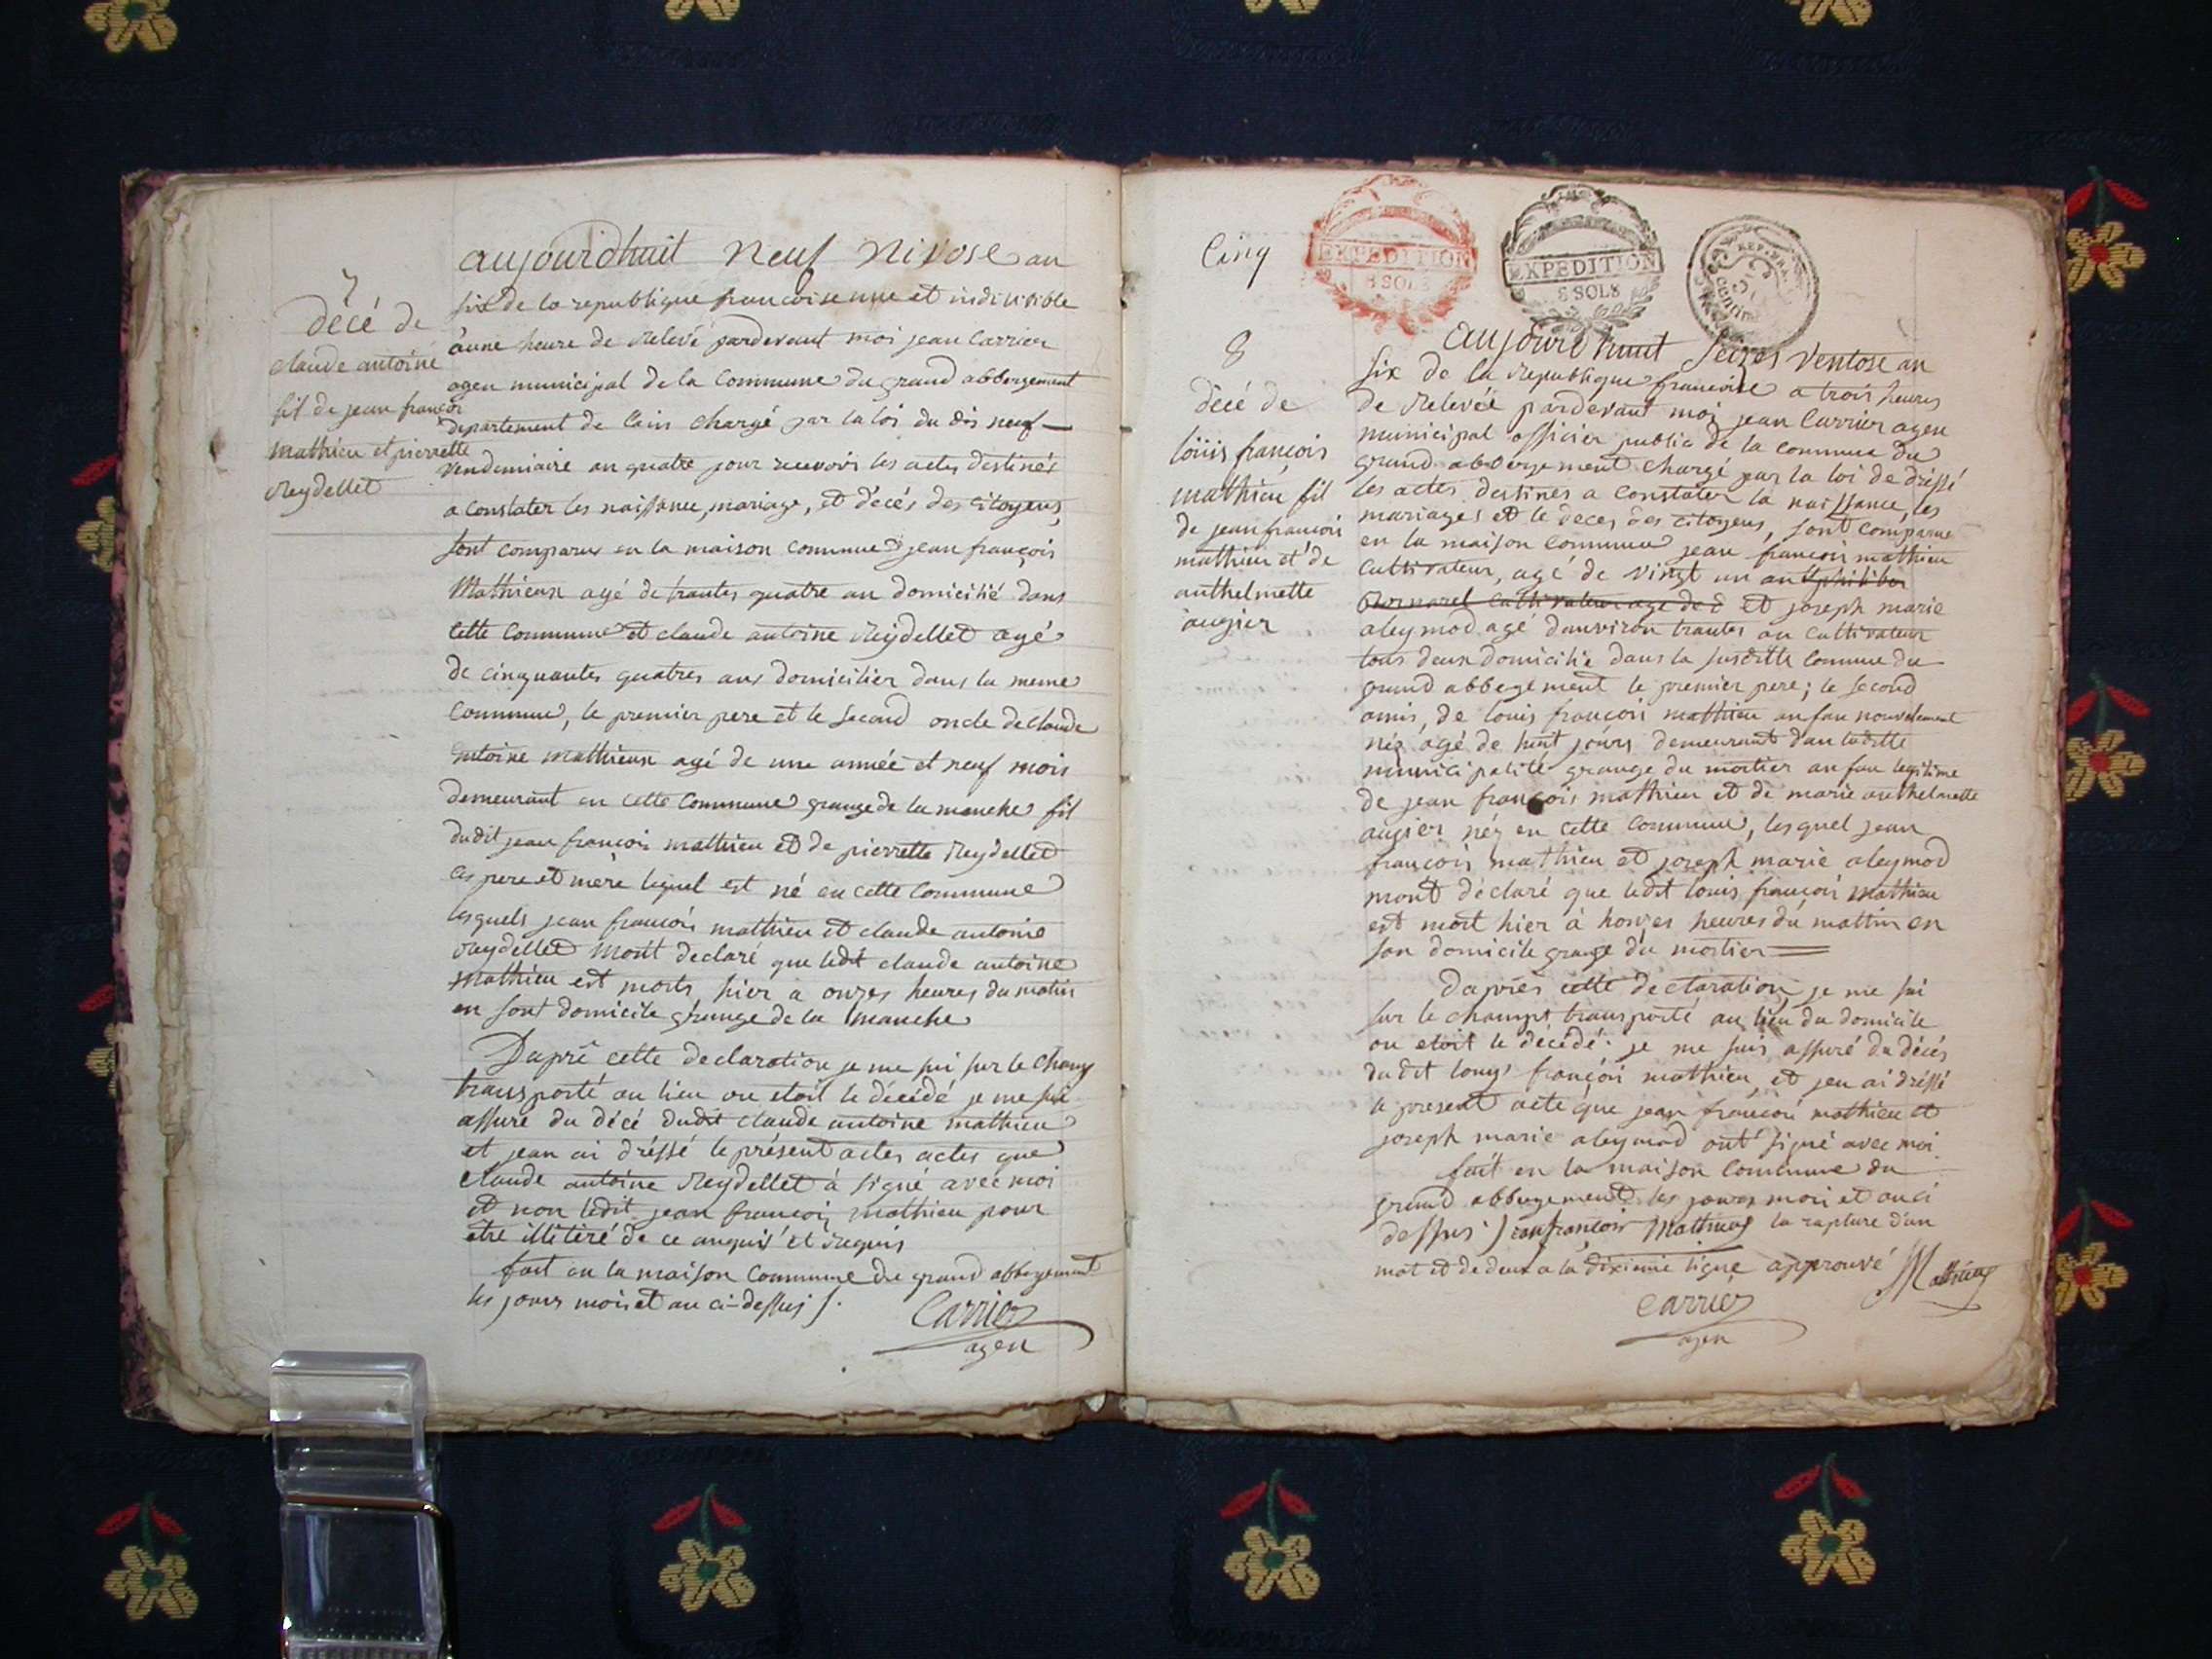 7
décé de
claude antoine
fil de jean françoi
mathieu et pierrette
Reydellet
aujouridhuit neuf nivose an
six de la republique francoise une et indivisible
à une heure de relevé pardevant moi jean Carrier
agen municipal de la Commune du grand abbergement
departement de lain chargé par la loi du dis neuf
vendemiaire an quatre pour recevoir les actes destinés
a constater les naissance, mariage, et décés des citoyens,
sont comparus en la maison commune jean françois
Mathieux agé de trantes quatre an domicilié dans
cette commune et claude antoine Reydellet agé
de cinquantes quatres ans domicilier dans la meme
commune, le premier pere et le second oncle de claude
antoine mathieux agé de une année et neuf mois
demeurant en cette commune grange de la manche fil
dudit jean françois mathieu et de pierrette Reydellet
ces pere et mere lequel est né en cette commune
lesquels jean françois mathieu et claude antoine
reydellet mont declaré que ledit claude antoine
mathieu est morts hier a onzes heures du matin
en sont domicile grange de la manche
Daprê cette declaration je me sui sur le champ
transporté au lieu ou etoit le décédé je me sui
assuré du décé dudit claude antoine mathieu
et jean ai dréssé le présent actes actes que
claude antoine Reydellet à signé avec moi
et non ledit jean françoi mathieu pour
etre illiteré de ce anquis et requis
fait en la maison commune du grand abbergement
les jours mois et an ci-dessus /.
Carrier
agen
Cinq
EXPEDITION
8 SOLS
EXPEDITION
8 SOLS
8
décé de
loüis françois
mathieu fil
de jean françois
mathieu et de
anthelmette
augier
aujourd'huit seizes ventose an
six de la republique françoise a trois heures
de relevée pardevant moi jean Carrier agen
municipal officier public de la commune du
grand abbergement chargé par la loi de dréssé
les actes destines a constater la naissance, les
mariages et le deces des citoyens, sont comparue
en la maison commune jean françois mathieu
cultivateur, agé de vingt un an
cultivateur age de et joseph marie
aleymod agé danviron trantes an cultivateur
tous deux domicilié dans la susditte commune du
grand abbegement le premier pere; le second
amis, de louis françois mathieu anfan nouvelement
néz agé de huit jours demeurant dan laditte
municipalité grange du mortier anfan legitime
de jean françois mathieu et de marie anthelmette
augier néz en cette commune, lesquel jean
françois mathieu et joseph marie aleymod
mont déclaré que ledit louis françois mathieu
est mort hier à honzes heures du mattin en
son domicile grange du mortier
Daprés cette déclaration je me sui
sur le champs transporté au lieu du domicile
ou etoit le décédé. je me suis assuré du décés
dudit louys françois mathieu et jen ai dréssé
le present acte que jean françoi mathieu et
joseph marie aleymod ont signé avec moi.
fait en la maison commune du
grand abbergement les jours mois et an ci
dessus jean françois Mathieu la rapture dun
mot et de deux a la dixieme ligne approuvé Mathieu
Carrier
agen